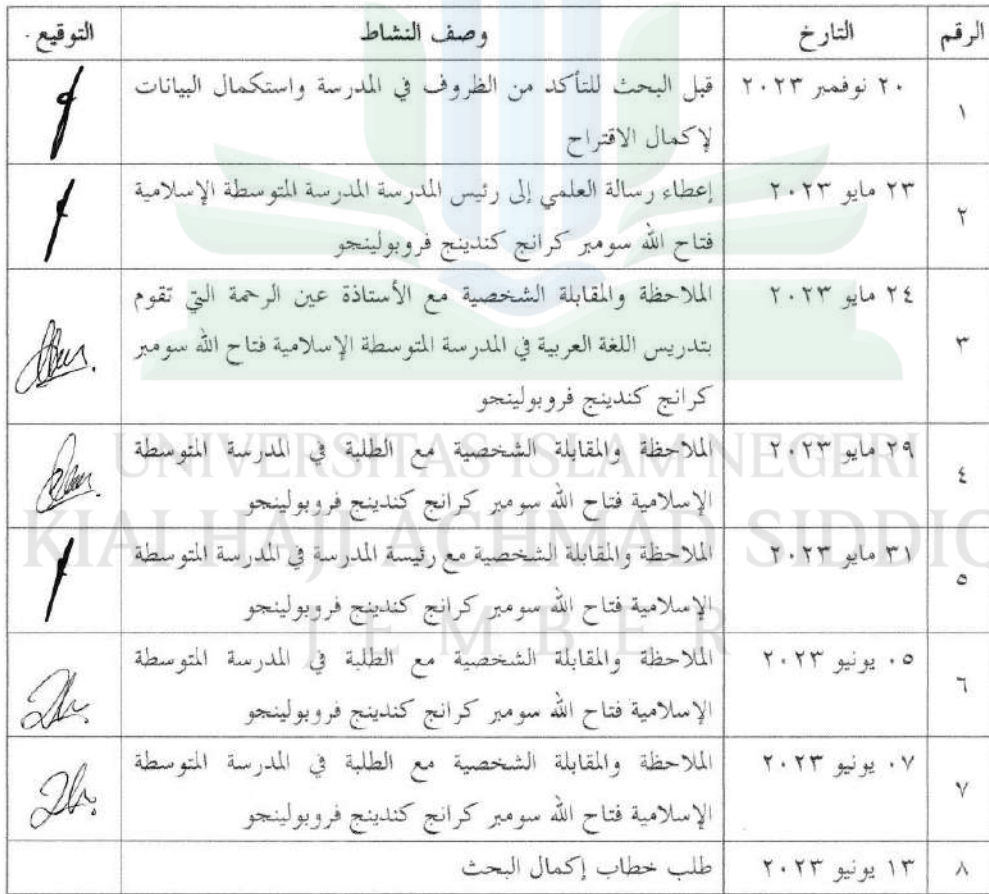 الرقم التارخ وصف النشاط التوقيع
١ ٢٠ نوفمبر ٢٠٢٣ قبل البحث للتأكد من الظروف في المدرسة واستكمال البيانات
لإكمال الاقتراح
٢ ٢٣ مايو ٢٠٢٣ إعطاء رسالة العلمي إلى رئيس المدرسة المدرسة المتوسطة الإسلامية
فتاح الله سومبر كرانج كندينج فروبولينجو
٣ ٢٤ مايو ٢٠٢٣ الملاحظة والمقابلة الشخصية مع الأستاذة عين الرحمة التي تقوم
بتدريس اللغة العربية في المدرسة المتوسطة الإسلامية فتاح الله سومبر
كرانج كندينج فروبولينجو
٤ ٢٩ مايو ٢٠٢٣ الملاحظة والمقابلة الشخصية مع الطلبة في المدرسة المتوسطة
الإسلامية فتاح الله سومبر كرانج كندينج فروبولينجو
UNIVERSITAS ISLAM NEGERI
KIAI HAJI ACHMAD SIDDIQ
٥ ٣١ مايو ٢٠٢٣ الملاحظة والمقابلة الشخصية مع رئيسة المدرسة في المدرسة المتوسطة
الإسلامية فتاح الله سومبر كرانج كندينج فروبولينجو
JEMBER
٦ ٠٥ يونيو ٢٠٢٣ الملاحظة والمقابلة الشخصية مع الطلبة في المدرسة المتوسطة
الإسلامية فتاح الله سومبر كرانج كندينج فروبولينجو
٧ ٠٧ يونيو ٢٠٢٣ الملاحظة والمقابلة الشخصية مع الطلبة في المدرسة المتوسطة
الإسلامية فتاح الله سومبر كرانج كندينج فروبولينجو
٨ ١٣ يونيو ٢٠٢٣ طلب خطاب إكمال البحث